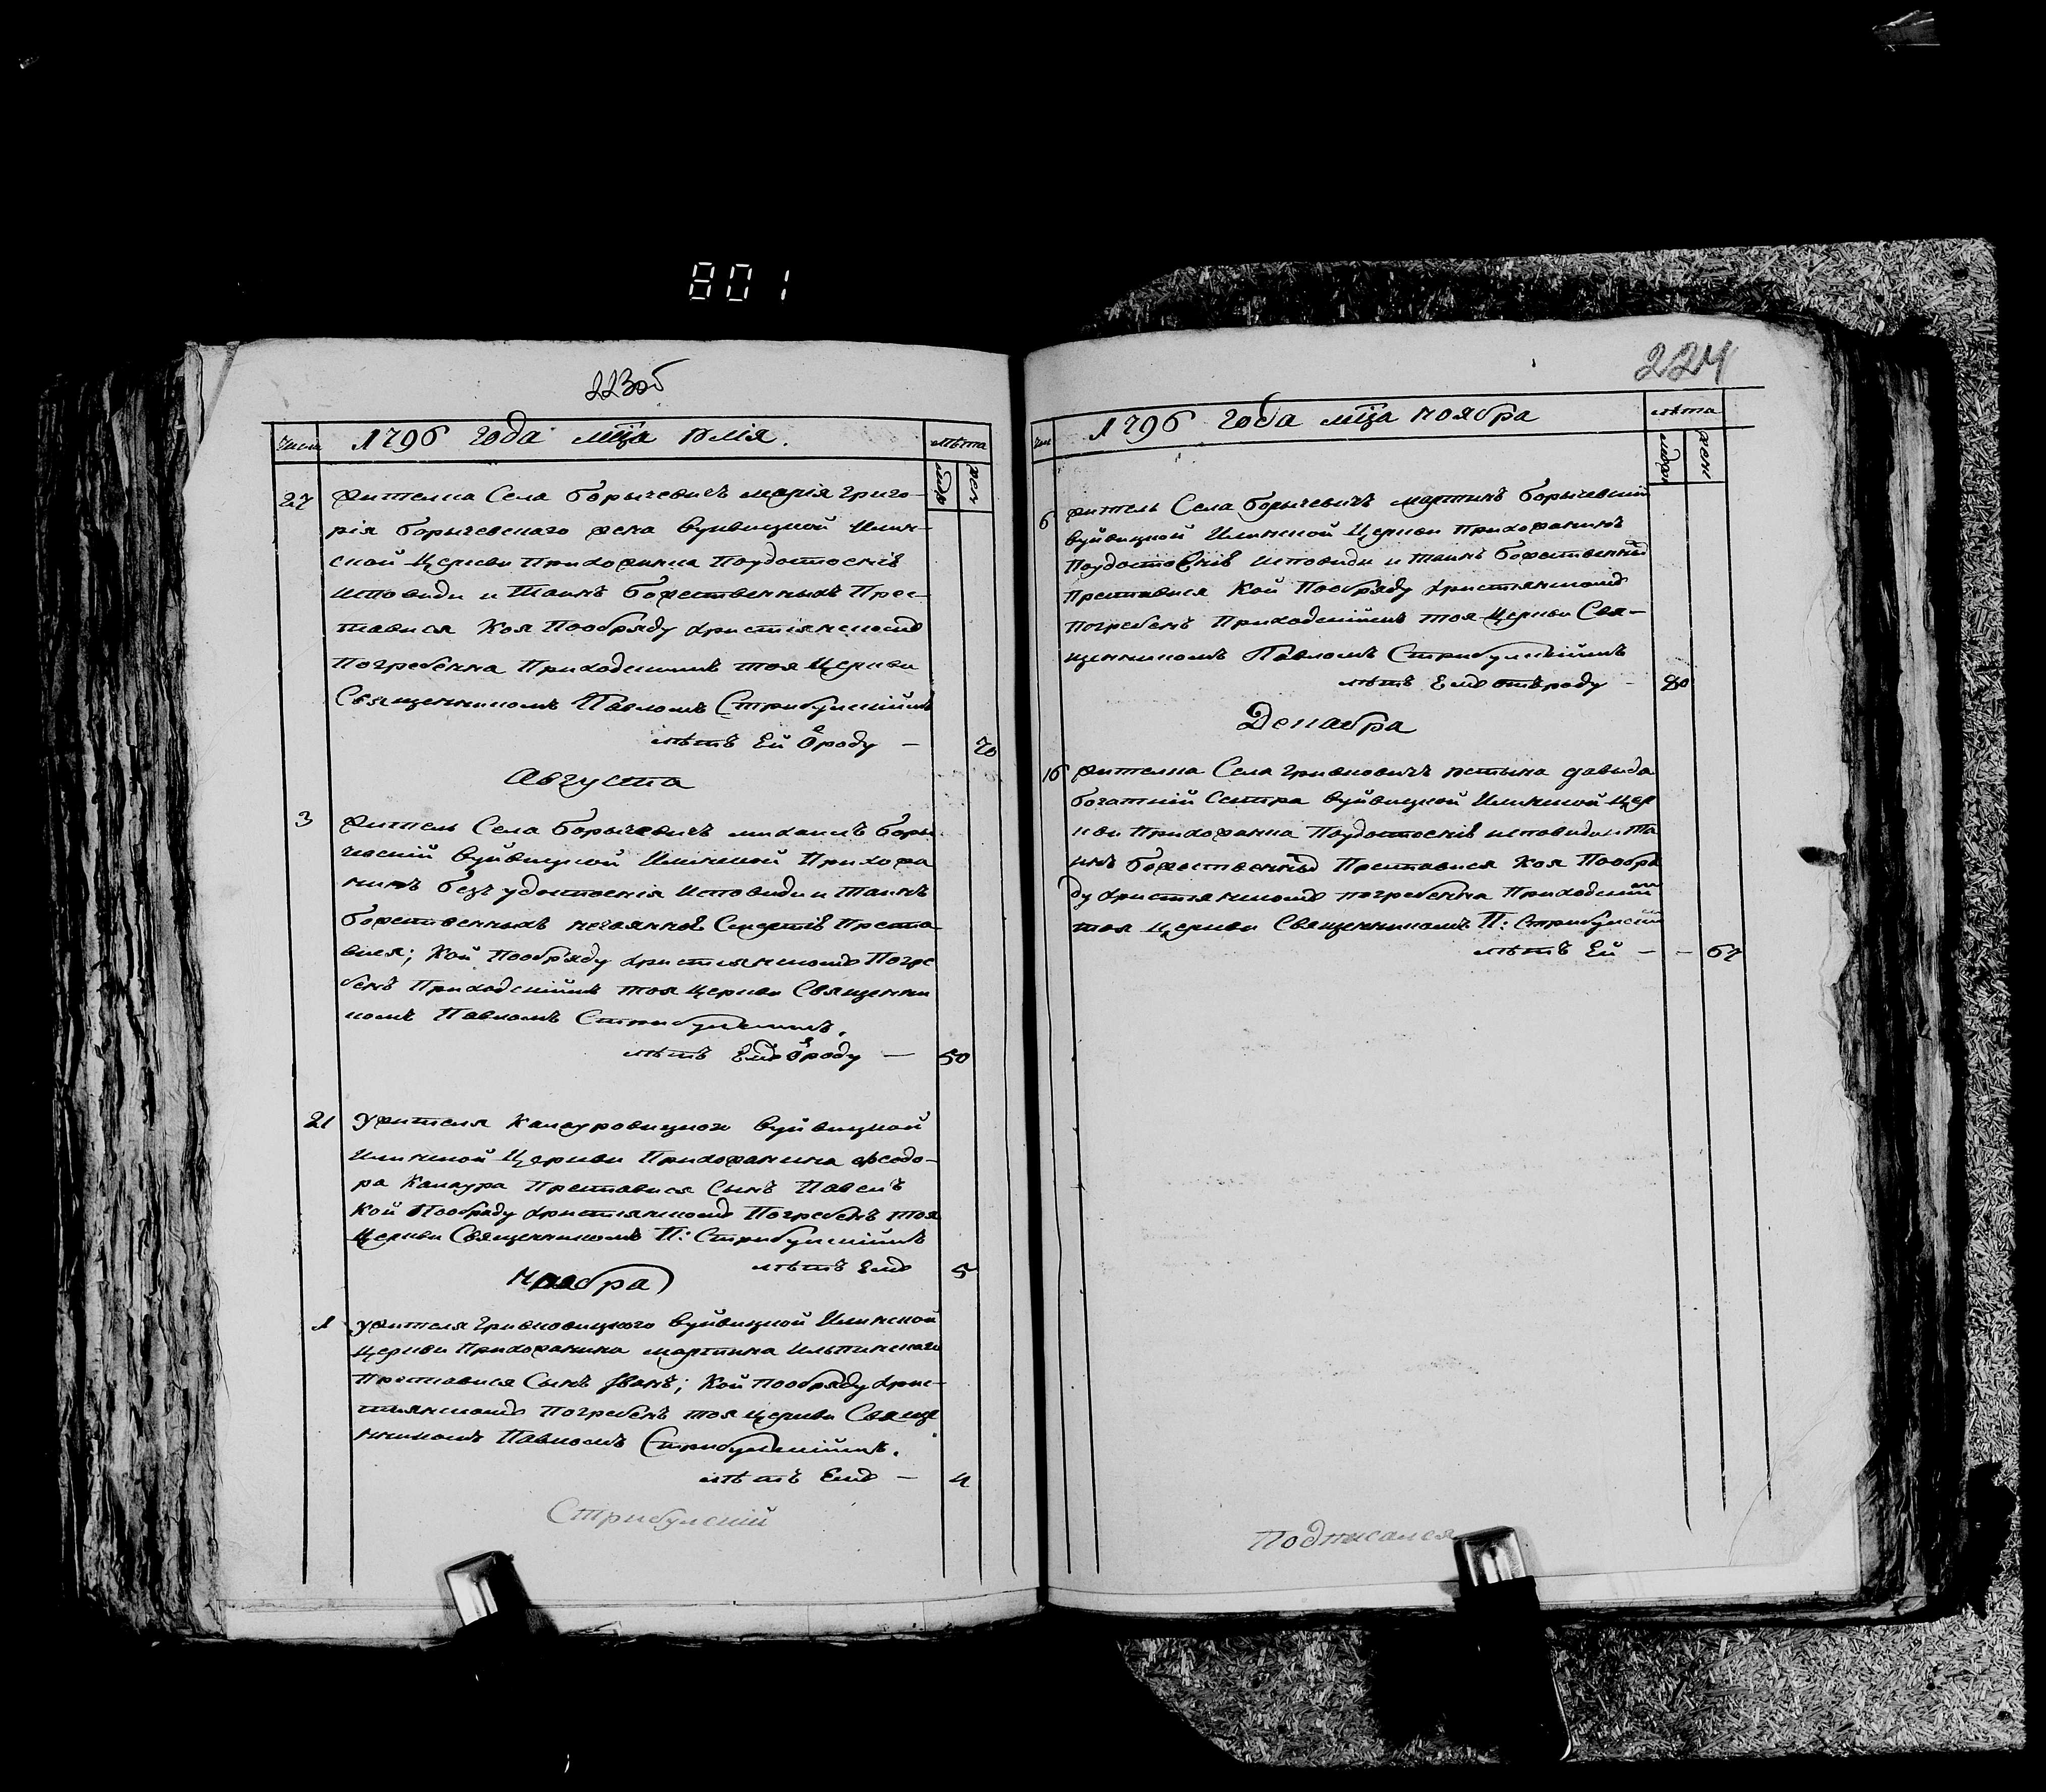 801
223об
числ 1796 года мца юлія. лѣта
муж жен
27 жителка Села Борычевичъ марія Григо-
рія Борычевского жена вуйвицкой Илин-
ской Церкви Прихожанка Поудостоенїѣ
исповиди и Таинъ Божественныхъ Прес-
тависа Коя Пообряду християнскому
погребенна Приходскимъ тоя Церкви
Священникомъ Павломъ Стрибулскимъ
лѣтъ Ей ѿроду — 70
Августа
3 житель Села Борычевичъ михаилъ Боры
чевскій вуйвицкой Илинской Прихожа
нинъ безъ удостоенія Исповиди и Таинъ
божественныхъ нечаянноѣ Смертїѣ Преста
вися; Кой Пообряду християнскому Погре
бенъ Приходскіимъ тоя Церкви Священни
комъ Павломъ Стрибулскимъ.
лѣтъ Ему ѿроду — 50
21 Ужителя Каллауровицкого вуйвицкой
Илинской Церкви Прихожанина Феодо-
ра Преставися Сынъ Павелъ
Кой Пообряду християнскому Погребенъ тоя
Церкви Священникомъ П: Стрибулскіимъ
лѣтъ Ему 5
Ноября
1 ужителя Гривковицкого вуйвицкой Илинской
Церкви Прихожанина мартина Ильинского
Преставися Сынъ Иванъ; Кой пообряду хрис-
тиянскому Погребенъ тоя церкви Свяще
нникомъ Павломъ Стрибулскіимъ.
лѣтъ Ему — 4
Стрибулскій
224
чис 1796 года мца ноября лѣта
мужеск жен
6 житель Села Борычевичъ мартинъ Борычевскій
вуйвицкой Илинской Церкви прихожанинъ
Поудостоенїѣ исповиди и таинъ Божественныхъ
Преставися Кой Пообряду християнскому
погребенъ Приходскіимъ тоя Церкви Свя-
щенникомъ Павломъ Стрибулскіимъ
лѣтъ Ему отъроду — 80
Декабра
16 жителка Села Гривковичъ юстына давыда
Сестра вуйвицкой Илинской Цер
кви Прихожанка Поудостоенїѣ исповиди и Та
инъ божественныхъ Преставися Коя Пообря
ду християнскому погребенна Приходским
тоя Церкви Священникомъ П: Стрибулским
лѣтъ Ей — — 67
Подписался